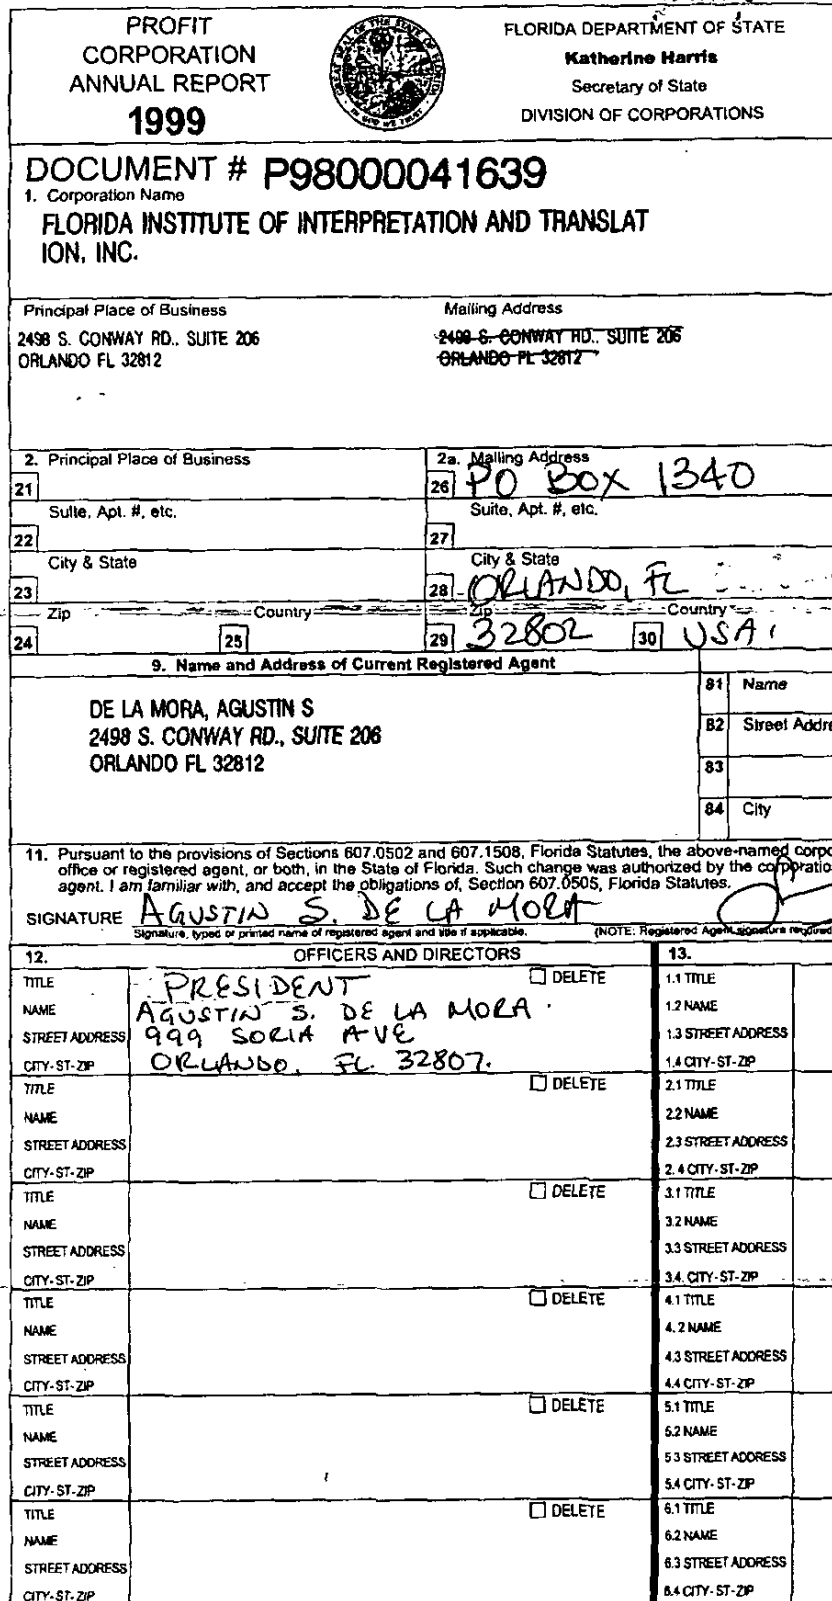 PROFIT
CORPORATION
ANNUAL REPORT
1999
FLORIDA DEPARTMENT OF STATE
Katherine Harris
Secretary of State
DIVISION OF CORPORATIONS
DOCUMENT # P98000041639
1. Corporation Name
FLORIDA INSTITUTE OF INTERPRETATION AND TRANSLAT
ION, INC.
Principal Place of Business
2498 S. CONWAY RD., SUITE 206
ORLANDO FL 32812
Mailing Address
2498 S. CONWAY RD., SUITE 206
ORLANDO FL 32812
2. Principal Place of Business
21
Suite, Apt. #, etc.
22
City & State
23
Zip
24
Country
25
2a. Mailing Address
26 PO BOX 1340
Suite, Apt. #, etc.
27
City & State
28 ORLANDO, FL
Zip
29 32802
Country
30 USA
9. Name and Address of Current Registered Agent
DE LA MORA, AGUSTIN S
2498 S. CONWAY RD., SUITE 206
ORLANDO FL 32812
81 Name
82 Street Addre
83
84 City
11. Pursuant to the provisions of Sections 607.0502 and 607.1508, Florida Statutes, the above-named corpo
office or registered agent, or both, in the State of Florida. Such change was authorized by the corporatio
agent. I am familiar with, and accept the obligations of, Section 607.0505, Florida Statutes.
SIGNATURE AGUSTIN S. DE LA MORA
Signature, typed or printed name of registered agent and title if applicable. (NOTE: Registered Agent signature required
12. OFFICERS AND DIRECTORS 13.
TITLE PRESIDENT DELETE 1.1 TITLE
NAME AGUSTIN S. DE LA MORA 1.2 NAME
STREET ADDRESS 999 SORIA AVE 1.3 STREET ADDRESS
CITY-ST-ZIP ORLANDO, FL. 32807. 1.4 CITY-ST-ZIP
TITLE DELETE 2.1 TITLE
NAME 2.2 NAME
STREET ADDRESS 2.3 STREET ADDRESS
CITY-ST-ZIP 2.4 CITY-ST-ZIP
TITLE DELETE 3.1 TITLE
NAME 3.2 NAME
STREET ADDRESS 3.3 STREET ADDRESS
CITY-ST-ZIP 3.4. CITY-ST-ZIP
TITLE DELETE 4.1 TITLE
NAME 4.2 NAME
STREET ADDRESS 4.3 STREET ADDRESS
CITY-ST-ZIP 4.4 CITY-ST-ZIP
TITLE DELETE 5.1 TITLE
NAME 5.2 NAME
STREET ADDRESS 5.3 STREET ADDRESS
CITY-ST-ZIP 5.4 CITY-ST-ZIP
TITLE DELETE 6.1 TITLE
NAME 6.2 NAME
STREET ADDRESS 6.3 STREET ADDRESS
CITY-ST-ZIP 6.4 CITY-ST-ZIP